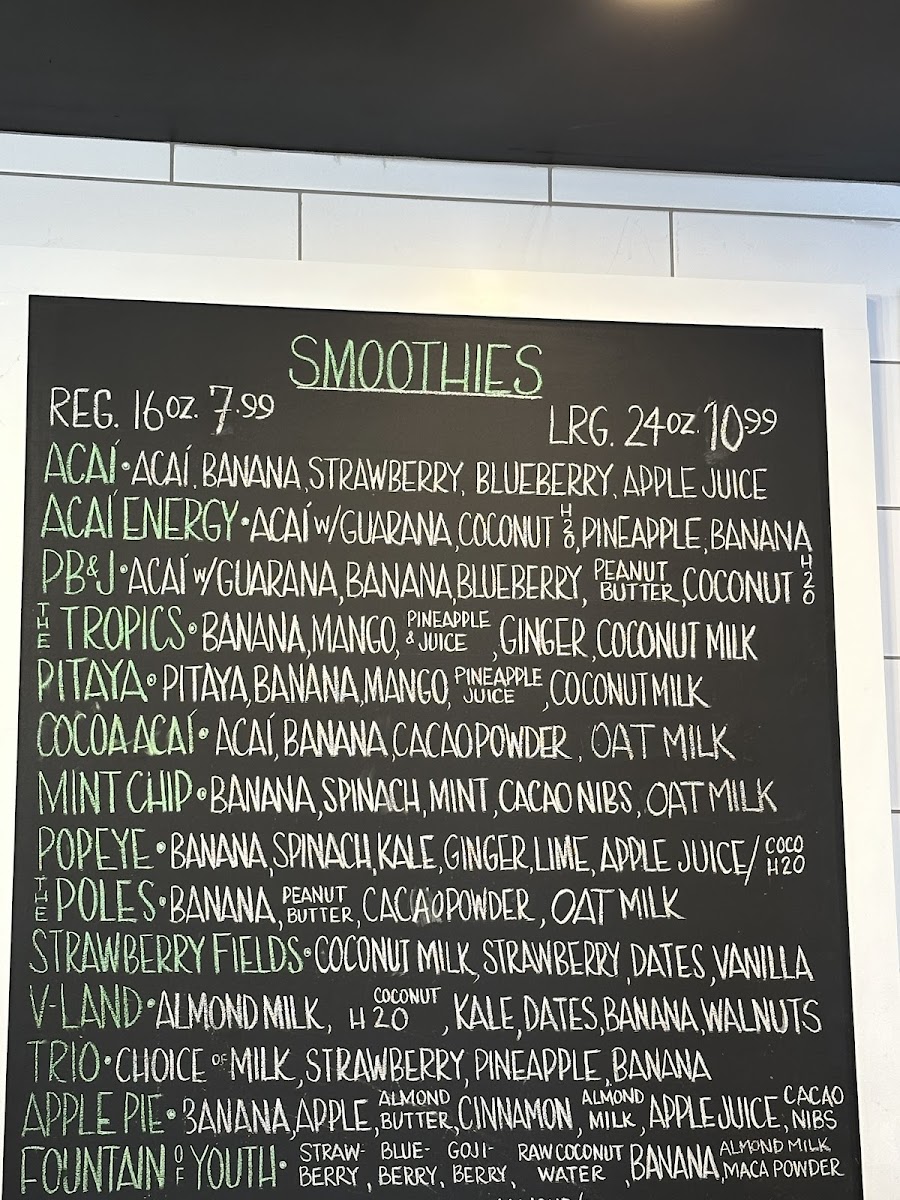 SMOOTHIES
REG. 16OZ. 7.99
LRG. 24OZ. 10.99
ACAÍ • ACAÍ, BANANA, STRAWBERRY, BLUEBERRY, APPLE JUICE
ACAÍ ENERGY • ACAÍ W/GUARANA, COCONUT H2O, PINEAPPLE, BANANA
PB&J • ACAÍ W/GUARANA, BANANA, BLUEBERRY, PEANUT BUTTER, COCONUT H2O
THE TROPICS • BANANA, MANGO, PINEAPPLE & JUICE, GINGER, COCONUT MILK
PITAYA • PITAYA, BANANA, MANGO, PINEAPPLE JUICE, COCONUT MILK
COCOA ACAÍ • ACAÍ, BANANA, CACAO POWDER, OAT MILK
MINT CHIP • BANANA, SPINACH, MINT, CACAO NIBS, OAT MILK
POPEYE • BANANA, SPINACH, KALE, GINGER, LIME, APPLE JUICE/ COCO H2O
THE POLES • BANANA, PEANUT BUTTER, CACAO POWDER, OAT MILK
STRAWBERRY FIELDS • COCONUT MILK, STRAWBERRY, DATES, VANILLA
V-LAND • ALMOND MILK, COCONUT H2O, KALE, DATES, BANANA, WALNUTS
TRIO • CHOICE OF MILK, STRAWBERRY, PINEAPPLE, BANANA
APPLE PIE • BANANA, APPLE, ALMOND BUTTER, CINNAMON, ALMOND MILK, APPLE JUICE, CACAO NIBS
FOUNTAIN OF YOUTH • STRAW-BERRY, BLUE-BERRY, GOJI-BERRY, RAW COCONUT WATER, BANANA, ALMOND MILK, MACA POWDER